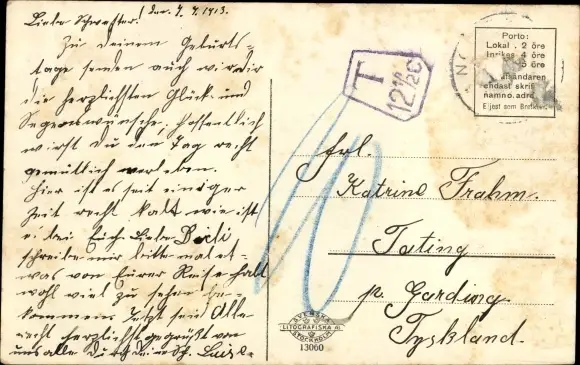 Liebe Schwester! Den 7. 4. 1913.
Zu deinem Geburts-
tage senden auch wir dir
die herzlichsten Glück und
Segenwünsche, hoffentlich
wirst du den Tag recht
gemütlich verleben.
Hier ist es seit einiger
Zeit recht kalt wie ist
es bei Euch. Liebe
schreibe mir bitte mal et-
was von Eurer Reise habt
wohl viel zu sehen be-
kommen. Jetzt sei
recht herzlichst gegrüßt von
uns alle durch deine Sch. Luise
T
12½ C
10
Porto:
Lokal . 2 öre
Inrikes 4 öre
5 öre
afsändaren
endast skrif
namn o. adr
Ej jest som Brefkort
Frl.
Katrine Frahm.
Tating
p. Garding
Tyskland.
SVENSKA
LITOGRAFISKA A.
STOCKHOLM
13060